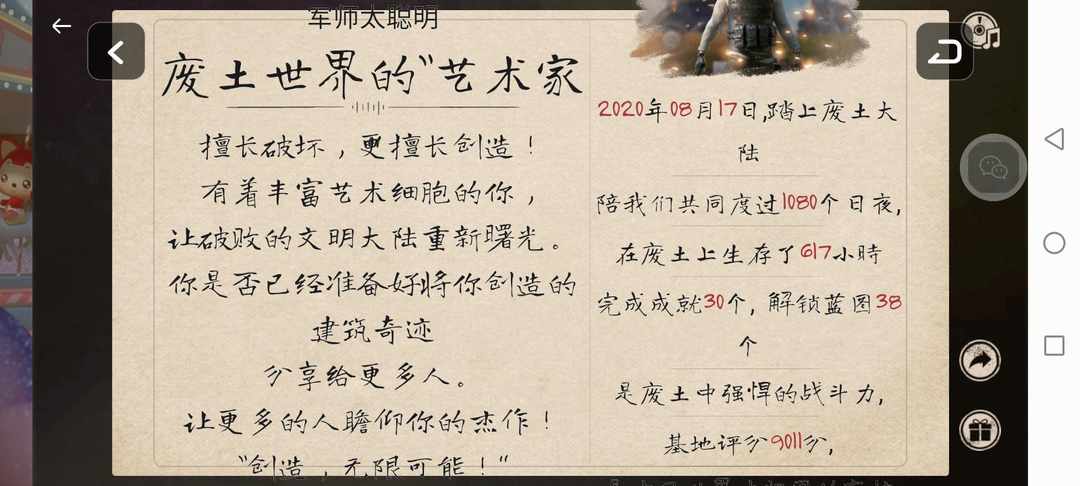 军师太聪明
废土世界的"艺术家
擅长破坏，更擅长创造！
有着丰富艺术细胞的你，
让破败的文明大陆重新曙光。
你是否已经准备好将你创造的
建筑奇迹
分享给更多人。
让更多的人瞻仰你的杰作！
"创造，无限可能！"
2020年08月17日,踏上废土大
陆
陪我们共同度过1080个日夜,
在废土上生存了617小時
完成成就30个, 解锁蓝图38
个
是废土中强悍的战斗力,
基地评分9011分,